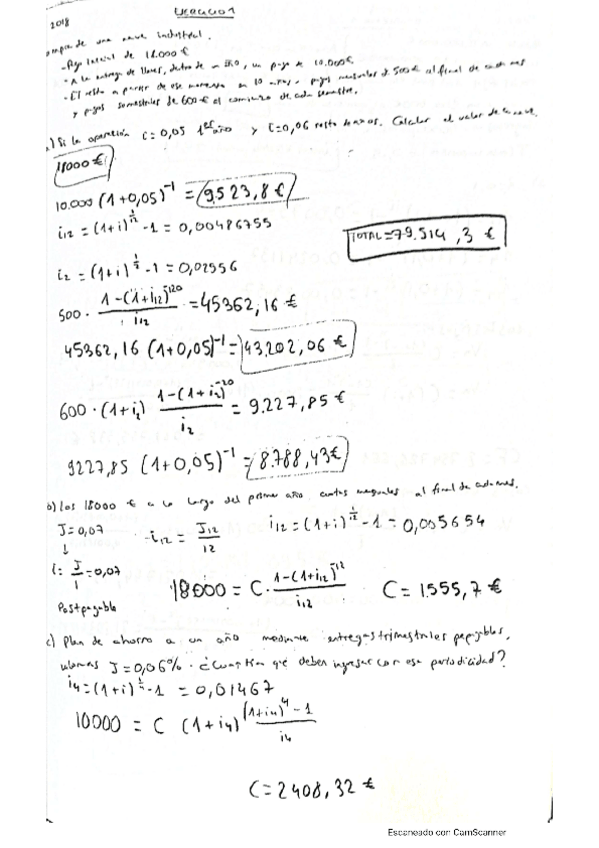 2018
EJERCICIO 1
compra de una nave industrial.
- Pago inicial de 18.000 €
- A la entrega de llaves, dentro de un año, un pago de 10.000€
- El resto a partir de ese momento en 10 años, pagos mensuales de 500€ al final de cada mes
y pagos semestrales de 600€ al comienzo de cada semestre.
a) Si la operación i=0,05 1er año y i=0,06 resto de años. Calcular el valor de la nave.
18000 €
10.000 (1+0,05)^-1 = 9.523,8 €
i12 = (1+i)^1/12 - 1 = 0,00486755
TOTAL = 79.514,3 €
i2 = (1+i)^1/2 - 1 = 0,02956
500 · 1-(1+i12)^-120 / i12 = 45362,16 €
45362,16 (1+0,05)^-1 = 43.202,06 €
600 · (1+i2) 1-(1+i2)^-20 / i2 = 9.227,85 €
9227,85 (1+0,05)^-1 = 8.788,43€
b) Los 18000 € a lo largo del primer año, cuotas mensuales al final de cada mes.
J=0,07
i12 = J12 / 12
i12 = (1+i)^1/12 - 1 = 0,005654
↓
i = J / 1 = 0,07
18000 = C · 1-(1+i12)^-12 / i12
C = 1555,7 €
Postpagable
c) Plan de ahorro a un año mediante entregas trimestrales prepagables,
J=0,06% . ¿Cuantía que deben ingresar con esa periodicidad?
i4 = (1+i)^1/4 - 1 = 0,01467
10000 = C (1+i4) (1+i4)^4 - 1 / i4
C = 2408,32 €
Escaneado con CamScanner